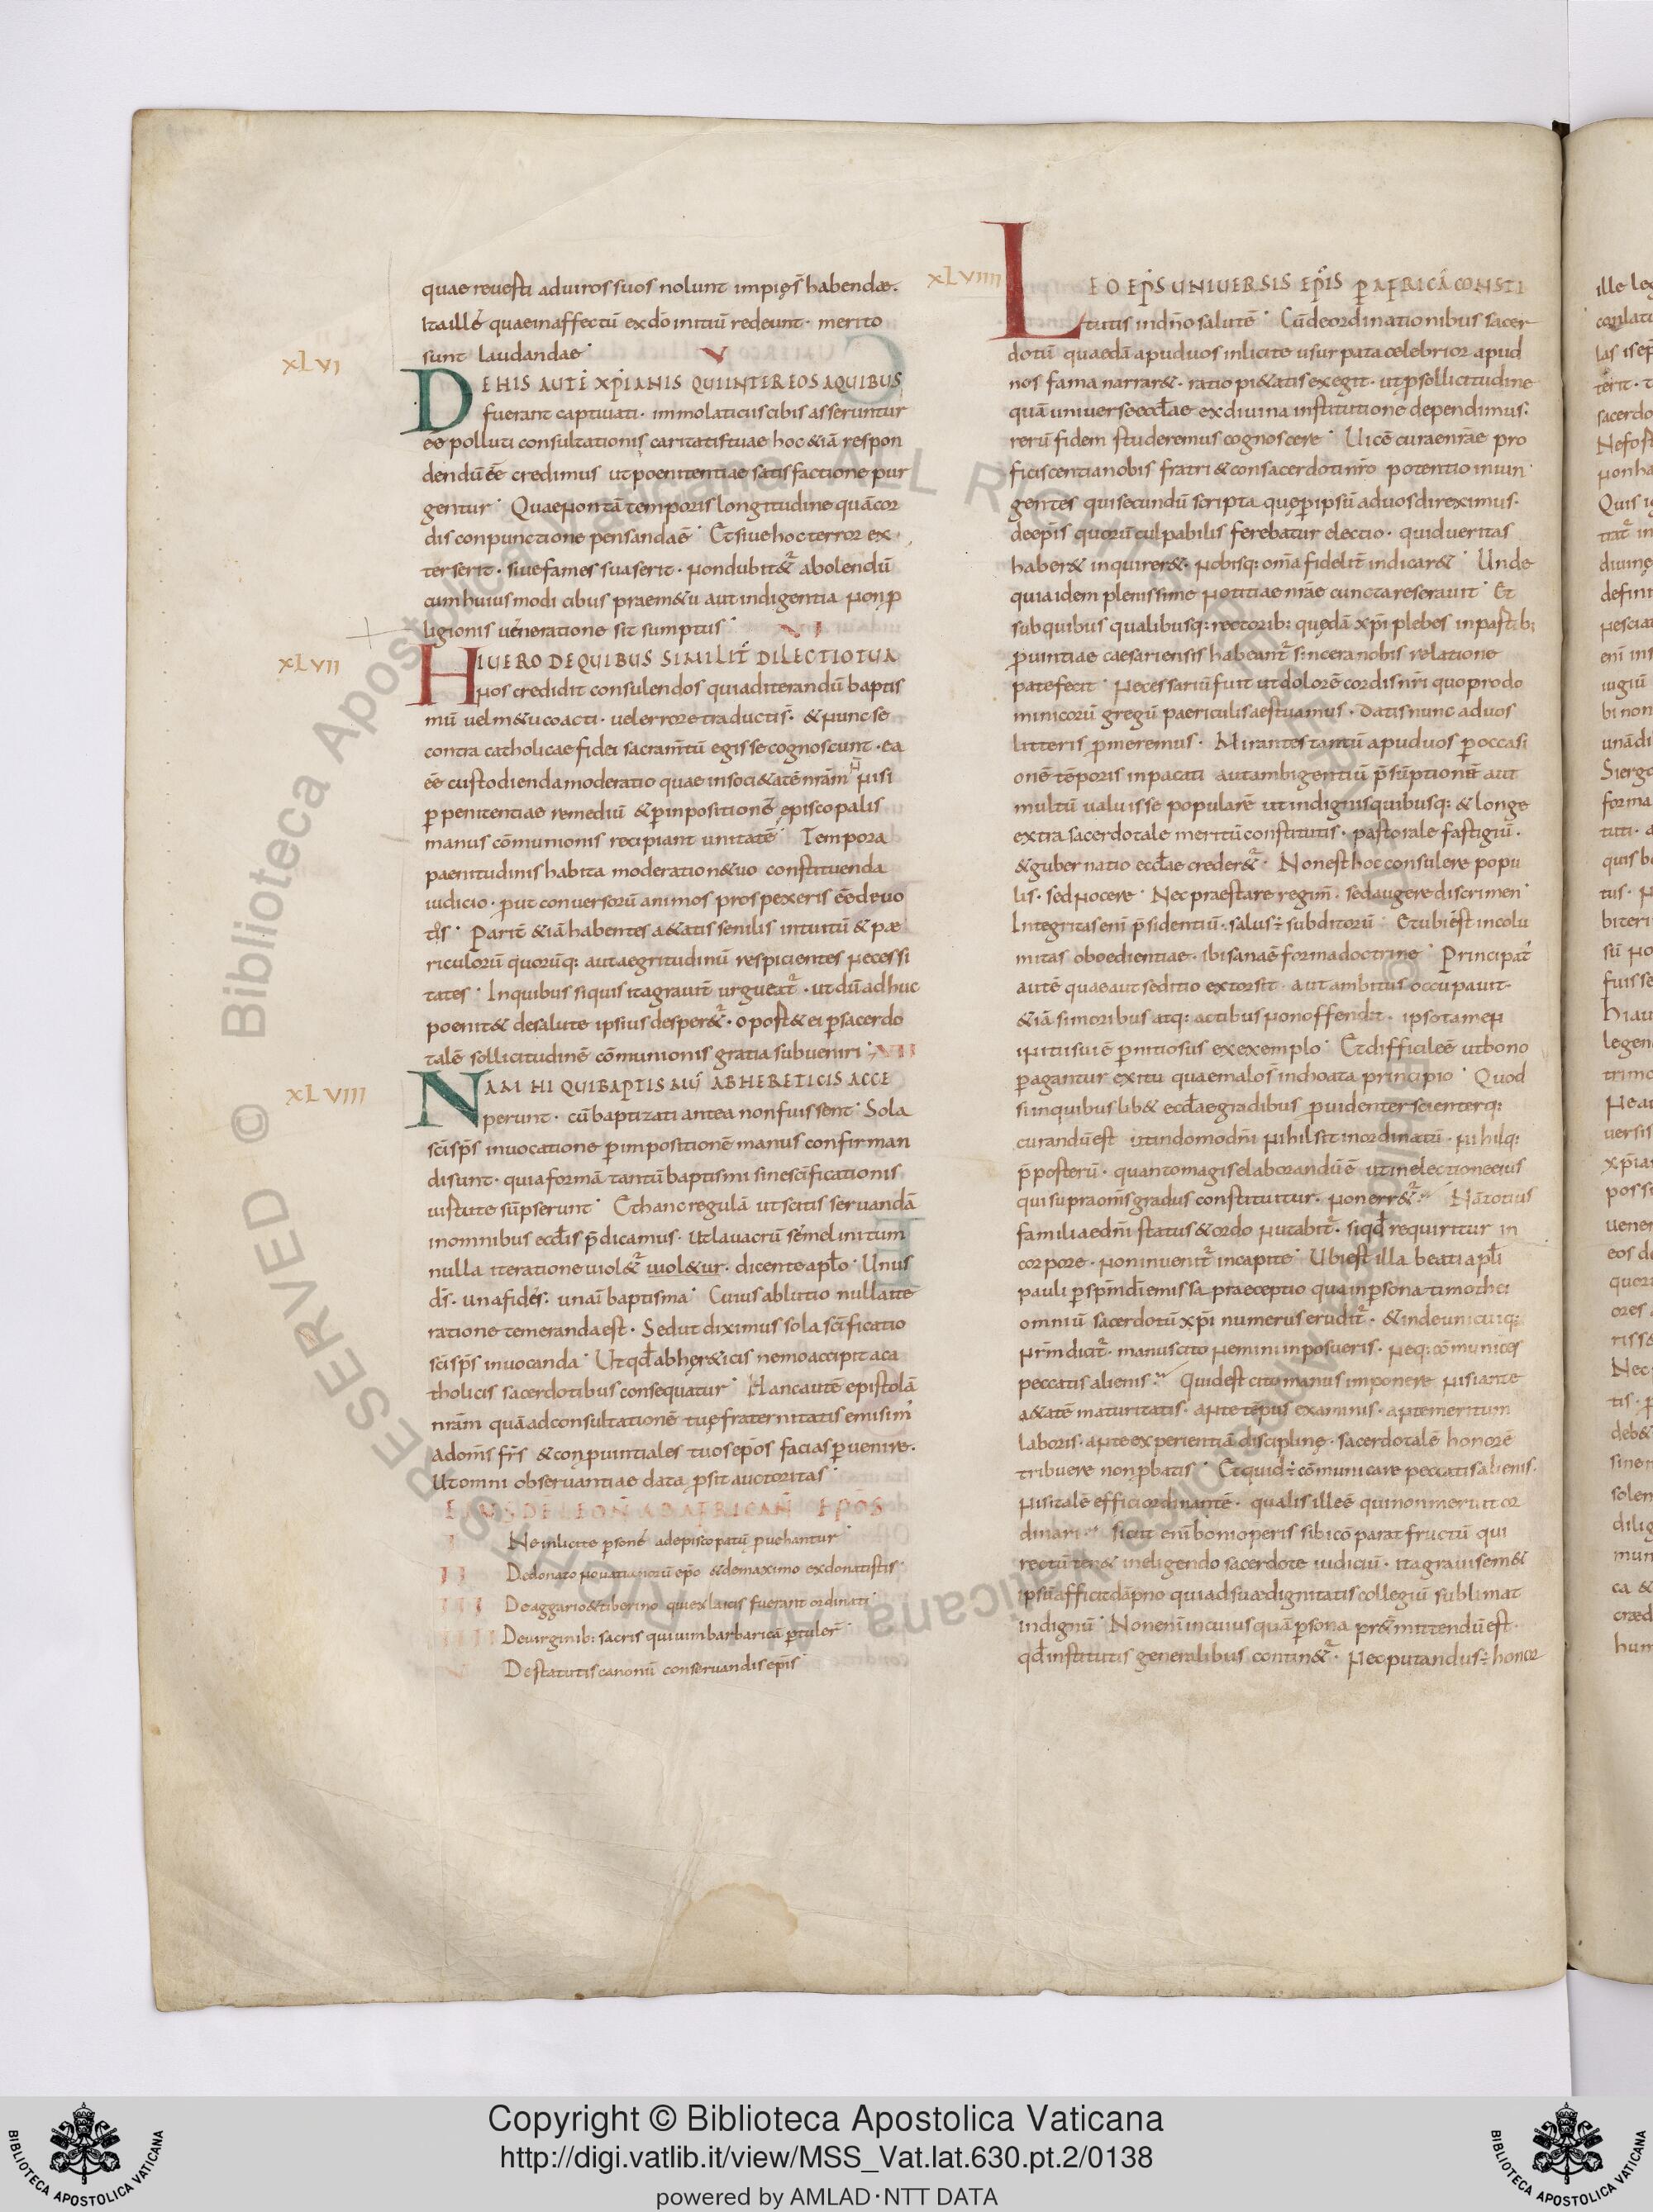 quae reuesti ad uiros suos nolunt impięs̄ habendae.
Ita illé quae in affectū ex dō initiū redeunt· merito
sunt laudandae·
V
XLVI
DE HIS AUTĒ XP̄IANIS QUI INTER EOS A QUIBUS
fuerant captiuati· immolaticiis cibis asseruntur
eē polluti consultationis caritatis tuae hoc &iā respon
dendū eē credimus ut poenitentiae satisfactione pur
gentur· Quae non tā temporis longitudine quā cor
dis conpunctione pensanda ē· Et siue hoc terror ex
terserit· siue fames suaserit· non dubit&ur abolendū
cum huiusmodi cibus prae m&u aut indigentia non p̄
ligionis ueneratione sit sumptus·
VI
XLVII
HI UERO DE QUIBUS SIMILIT̄ DILECTIO TUA
nos credidit consulendos qui ad iterandū baptis
mū uel m&u coacti· uel errore traducti s̄· & nunc se
contra catholicae fidei sacram̄tū egisse cognoscunt· ea
eē custodienda moderatio quae in soci&atē nr̄am nisi
p penitentiae remediū & p inpositionē episcopalis
manus cōmunionis recipiant unitatē· Tempora
paenitudinis habita moderation& uo constituenda
iudicio· put conuersorū animos prospexeris eē deuo
tos· Parit̄ &iā habentes a&atis senilis intuitū & pae
riculorū quorūq: aut aegritudinū respicientes necessi
tates· In quibus si quis ita grauit̄ urguetr· ut dū adhuc
poenit& de salute ipsius desper&ur· oport& ei p sacerdo
talē sollicitudinē cōmunionis gratia subueniri· VII
XLVIII
NAM HI QUI BAPTISMŪ AB HERETICIS ACCE
perunt· cū baptizati antea non fuissent· Sola
sc̄i sp̄s inuocatione p impositionē manus confirman
di sunt· quia formā tantū baptismi sine sc̄ificationis
uirtute sūpserunt· Et hanc regulā ut scitis seruandā
in omnibus eccl̄is p̄dicamus· ut lauacrū semel initum
nulla iteratione uiol&ur uiol&ur· dicente apl̄o· Unus
dn̄s· una fides· unū baptisma· Cuius ablutio nulla ite
ratione temeranda est· Sed ut diximus sola sc̄ificatio
sc̄i sp̄s inuocanda· Ut qd̄ ab her&icis nemo accipit a ca
tholicis sacerdotibus consequatur· Hanc autē epistolā
nr̄am quā ad consultationē tuę fraternitatis emisim᾽
ad om̄s fr̄s & conpuintiales tuos ep̄os facias puenire·
Ut omni obseruantiae data p sit auctoritas·
EIUSDĒ LEON̄ AD AFRICAN̄ EPŌS
I Ne inlicite psonę ad episcopatū puehantur·
II De donato nouatianorū ep̄o & de maximo ex donatistis·
III De aggario & tiberino qui ex laicis fuerant ordinati·
IIII De uirginib: sacris qui uim barbaricā ptuler̄·
V De statutis canonū conseruandis ep̄is·
XLVIIII
LEO EP̄S UNIUERSIS EP̄IS P AFRICĀ CONSTI
tutis in dn̄o salutē· Cū de ordinationibus sacer
dotū quaedā apud uos inlicite usurpata celebrior apud
nos fama narrar&· ratio pi&atis exegit· ut p sollicitudine
quā uniuersę eccl̄ae ex diuina institutione dependimus:
rerū fidem studeremus cognoscere· Uicē curae nr̄ae pro
ficiscentia nobis fratri & consacerdoti nr̄o potentio iniun
gentes qui secundū scripta quę p ipsū ad uos direximus·
de ep̄is quorū culpabilis ferebatur electio· quid ueritas
haber& inquirer&· nobisq: om̄a fidelit̄ indicar&· Unde
quia idem plenissime notitiae nr̄ae cuncta reserauit· Et
sub quibus qualibusq: rectorib: quędā xp̄i plebes in partib:
puintiae caesariensis habeant̄ sincera nobis relatione
patefecit· Necessariū fuit ut dolorē cordis nr̄i quo pro do
minicorū gregū paericulis aestuamus· datis nunc ad uos
litteris p̄meremus· Mirantes tantū apud uos p occasi
onē tēporis inpacati aut ambigentiū p̄sūptionē aut
multū ualuisse popularē ut indignis quibusq: & longe
extra sacerdotale meritū constitutis· pastorale fastigiū·
& gubernatio eccl̄ae creder&ur· Non est hoc consulere popu
lis· sed nocere· Nec praestare regim̄· sed augere discrimen·
Integritas enī p̄sidentiū· salus ÷ subditorū· Et ubi est incolu
mitas oboedientiae· ibi sana ē forma doctrine· Principat᾽
autē quae aut seditio extorsit· aut ambitus occupauit·
&iā si moribus atq: actibus non offendit· ipso tamen
initii sui ē pnitiosus exemplo· Et difficile ē ut bono
pagantur exitu quae malo s̄ inchoata principio· Quod
si in quibuslib& eccl̄ae gradibus puidenter scienterq:
curandū est ut in domo dn̄i nihil sit inordinatū· nihilq:
p̄posterū· quanto magis elaborandū ē ut in electione eius
qui supra om̄s gradus constituitur· non err&ur· Nā totius
familiae dn̄i status & ordo nutabit̄· si qd̄ requiritur in
corpore· non inuenit̄ in capite· Ubi est illa beati apl̄i
pauli p sp̄m dī emissa praeceptio qua in psona timothei
omniū sacerdotū xp̄i numerus erudit̄· & inde unicuiq:
nr̄m dicit̄· manus cito nemini inposueris· neq: cōmunices
peccatis alienis· Quid est cito manus imponere nisi ante
a&atē maturitatis· ante tēpus examinis· ante meritum
laboris· ante experientiā disciplinę· sacerdotalē honorē
tribuere non pbatis· Et quid ÷ cōmunicare peccatis alienis·
nisi talē effici ordinantē· qualis ille ē qui non meruit or
dinari· sicut enī boni operis sibi cōparat fructū qui
rectū ten& in eligendo sacerdote iudiciū· ita graui sem&
ipsū afficit dāpno qui ad suae dignitatis collegiū sublimat
indignū· Non enī in cuiusquā psona pr&mittendū est·
qd̄ institutis generalibus contin&ur· Nec putandus ÷ honor
Copyright © Biblioteca Apostolica Vaticana
http://digi.vatlib.it/view/MSS_Vat.lat.630.pt.2/0138
powered by AMLAD·NTT DATA